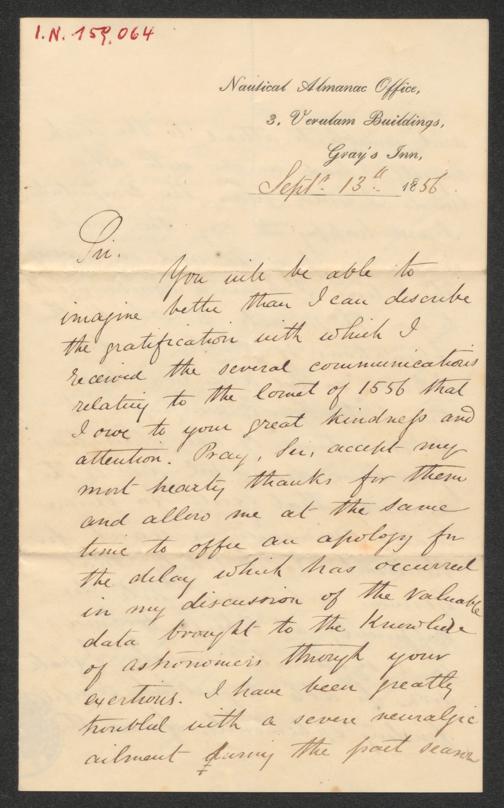 I.N. 159.064
Nautical Almanac Office,
3, Verulam Buildings,
Gray's Inn,
Septr. 13th. 1856.
Sir.
You will be able to
imagine better than I can describe
the gratification with which I
received the several communications
relating to the Comet of 1556 that
I owe to your great kindness and
attention. Pray, Sir, accept my
most hearty thanks for them
and allow me at the same
time to offer an apology for
the delay which has occurred
in my discussion of the valuable
data brought to the Knowledge
of astronomers through your
exertions. I have been greatly
troubled with a severe neuralgic
ailment during the past season